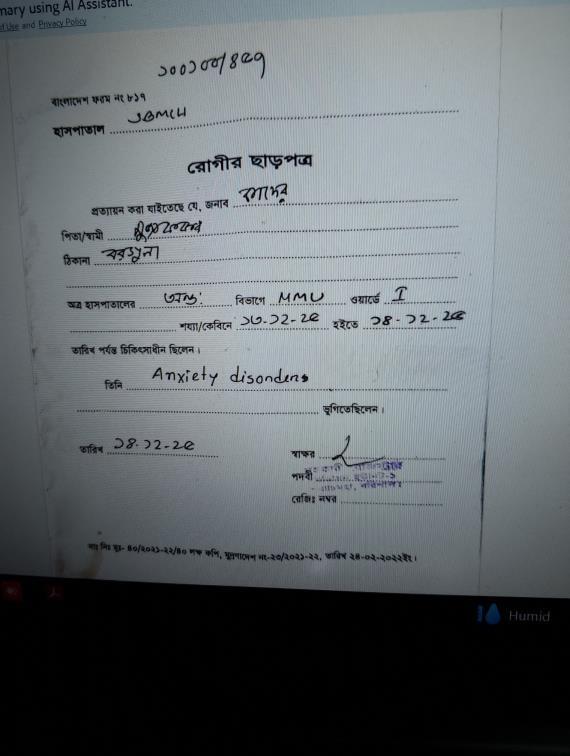 mary using AI Assistant.
of Use and Privacy Policy
১০০১০০/৪৫৭
বাংলাদেশ ফরম নং ৮১৭
হাসপাতাল SBMCH
রোগীর ছাড়পত্র
প্রত্যায়ন করা যাইতেছে যে, জনাব
পিতা/স্বামী
ঠিকানা বরগুনা
অত্র হাসপাতালের অন্তঃ বিভাগে MMU ওয়ার্ডে I
শয্যা/কেবিনে ১৩-১২-২৫ হইতে ১৪-১২-২৫
তারিখ পর্যন্ত চিকিৎসাধীন ছিলেন।
তিনি Anxiety disorders
ভুগিতেছিলেন।
তারিখ ১৪-১২-২৫
স্বাক্ষর
পদবী
রেজিঃ নম্বর
৪০/২০২১-২২/৪০ লক্ষ কপি, মুদ্রণাদেশ নং-২০/২০২১-২২, তারিখ ২৪-০২-২০২২ইং।
Humid